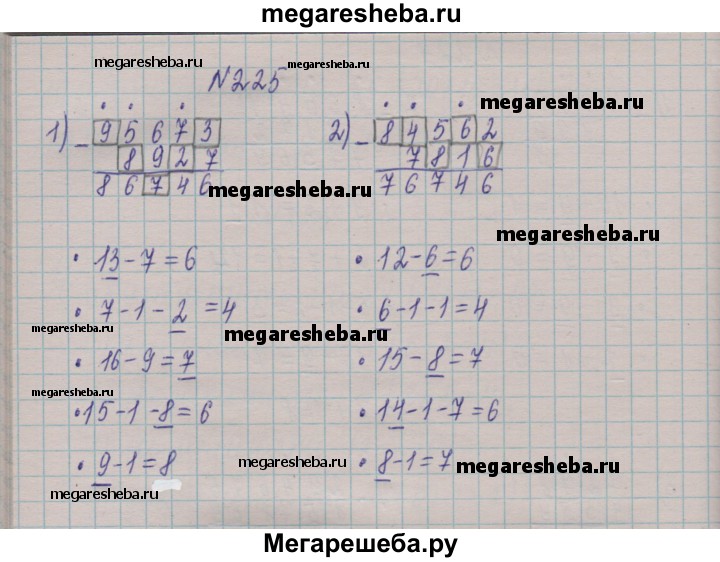 megaresheba.ru
megaresheba.ru
№225
megaresheba.ru
1) _ 95673
8927
86746
2) _ 84562
7816
76746
megaresheba.ru
megaresheba.ru
megaresheba.ru
• 13-7=6
• 12-6=6
• 7-1-2 =4
• 6-1-1=4
megaresheba.ru
megaresheba.ru
• 16-9=7
• 15-8=7
megaresheba.ru
• 15-1-8=6
• 14-1-7=6
• 9-1=8
megaresheba.ru
• 8-1=7
megaresheba.ru
megaresheba.ru
megaresheba.ru
Мегарешеба.ру